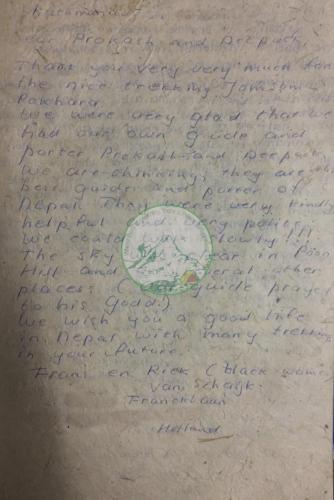 Prakash and Deepack
Thank you very very much for
the nice trekking Jomsom
Pokhara
We were very glad that we
had our own guide and
porter Prekash and Deepack
We are thinking they are the
best guide and porter of
Nepal They were very kindly
helpful and very polite.
We could walk slowly!!
The sky was clear in Poon
Hill and several other
places. (guide prayed
to his Godd!)
We wish you a good life
in Nepal with many trekking
in your future.
en Rick (black wom
van Schaijk.
Francklaan
Holland